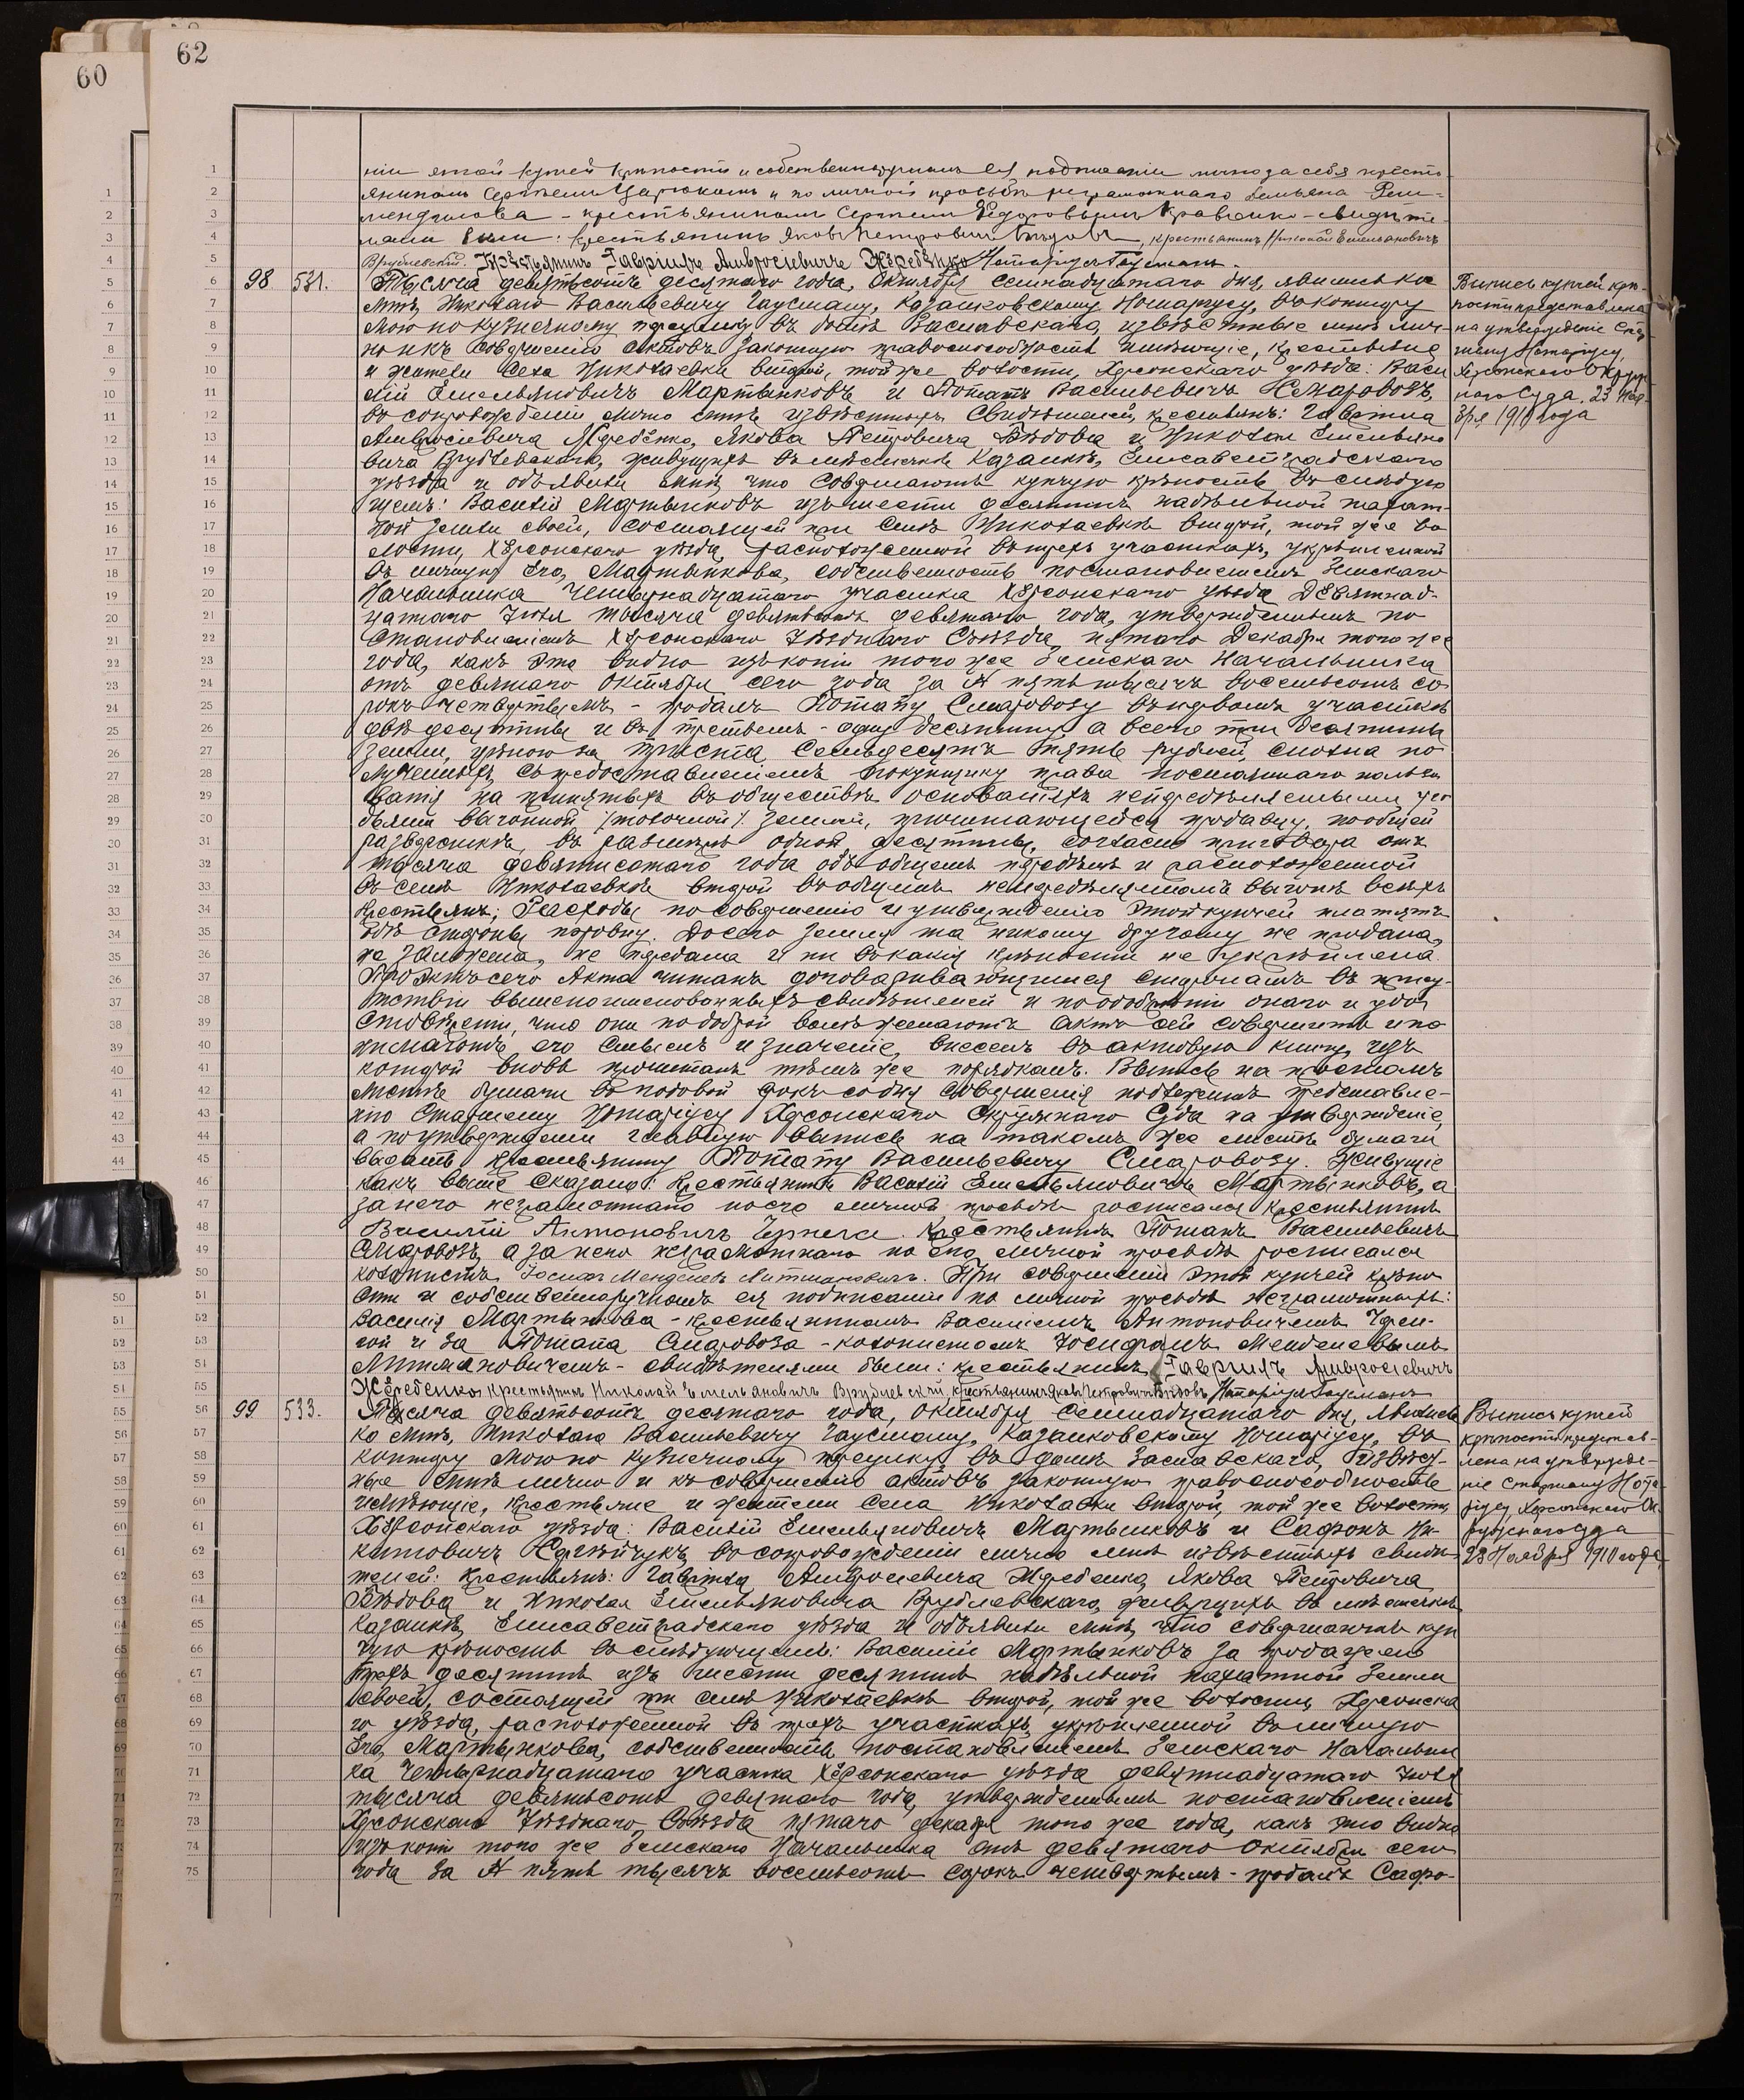 62
60
ніи этой купчей крѣпости и собственноручномъ ея подписаніи лично за себя кресть-
яниномъ Сергѣемъ и по личной просьбѣ неграмотнаго Демьяна
- крестьяниномъ Сергѣемъ Ѳедоровымъ Кравченко - свидѣте-
лями были: Крестьянинъ Яковъ Петровичъ Бѣдовъ, крестьянинъ Николай Емельяновичъ
Врублевскій. Крестьянинъ Гавріилъ Амвросіевичъ Жеребенко Нотаріусъ Гаусманъ.
98 531. Тысяча девятьсотъ десятаго года, Октября семнадцатаго дня, явились ко
мнѣ, Николаю Васильевичу Гаусману, Казанковскому Нотаріусу, въ контору
мою по Кузнечному переулку, въ домѣ Заславскаго, извѣстные мнѣ лич-
но и къ совершенію актовъ законную правоспособность имѣющіе, крестьяне
и жители села Николаевки второй, той же волости, Херсонскаго уѣзда: Васи
лій Емельяновичъ Мартынковъ и Потапъ Васильевичъ Смаровозъ,
въ сопровожденіи лично мнѣ извѣстныхъ свидѣтелей, крестьянъ: Гавріила
Амвросіевича Жребенко, Якова Петровича Бѣдова и Николая Емельяно
вича Врублевскаго, живущихъ въ мѣстечкѣ Казанкѣ, Елисаветградскаго
уѣзда и объявили мнѣ, что совершаютъ купчую крѣпость въ слѣдую
щемъ: Василій Мартынковъ изъ шести десятинъ надѣльной пахат-
ной земли своей, состоящей при селѣ Николаевкѣ второй, той же во
лости, Херсонскаго уѣзда, расположенной въ трехъ участкахъ, укрѣпленной
въ личную его, Мартынкова, собственность постановленіемъ Земскаго
Начальника Четырнадцатаго участка Херсонскаго уѣзда девятнад-
цатаго Іюля тысяча девятьсотъ девятаго года, утвержденнымъ по
становленіемъ Херсонскаго Уѣзднаго Съѣзда, пятаго Декабря того же
года, какъ это видно изъ копіи того же Земскаго Начальника
отъ девятаго Октября сего года за № пять тысячъ восемьсотъ со
рокъ четвертымъ - продалъ Потапу Смаровозу въ первомъ участкѣ
двѣ десятины и въ третьемъ - одну десятину, а всего три десятины
земли, цѣною за триста семьдесятъ пять рублей, сполна по
лученныхъ, съ предоставленіемъ покупщику права постояннаго пользо
ванія на принятыхъ въ обществѣ основаніяхъ нераздѣляемыми уго
дьями выгонной /толочной/ земли, причитающейся продавцу, по общей
разверсткѣ, въ размѣрѣ одной десятины, согласно приговора отъ
тысяча девятисотаго года объ общемъ передѣлѣ и расположенной
въ селѣ Николаевкѣ второй въ общемъ нераздѣляемомъ выгонѣ всѣхъ
крестьянъ; Расходы по совершенію и утвержденію этой купчей платятъ
обѣ стороны поровну. До сего земля та никому другому не продана,
не заложена, не передана и ни въ какія крѣпости не укрѣплена.
Проэктъ сего Акта читанъ договаривающимся сторонамъ въ прису-
тствіи вышепоименованныхъ свидѣтелей и по одобреніи онаго и удо
стовѣреніи, что они по доброй волѣ желаютъ актъ сей совершить и по
нимаютъ его смыслъ и значеніе, внесенъ въ актовую книгу, изъ
которой вновь прочитанъ тѣмъ же порядкомъ. Выпись на простомъ
листѣ бумаги въ годовой срокъ со дня совершенія подлежитъ представле-
нію Старшему Нотаріусу Херсонскаго Окружнаго Суда на утвержденіе,
а по утвержденіи главную выпись на такомъ же листѣ бумаги
выдать крестьянину Потапу Васильевичу Смаровозу. Живущіе
какъ выше сказано: Крестьянинъ Василій Емельяновичъ Мартынковъ, а
за него неграмотнаго по его личной просьбѣ росписался крестьянинъ
Василій Антоновичъ Чернега. Крестьянинъ Потапъ Васильевичъ
Смаровозъ, а за него неграмотнаго по его личной просьбѣ росписался
колонистъ Іосифъ Менделевъ Литмановичъ. При совершеніи этой купчей крѣпо
сти и собственноручномъ ея подписаніи по личной просьбѣ неграмотныхъ:
Василія Мартынкова - крестьяниномъ Василіемъ Антоновичемъ Черне-
гой и за Потапа Смаровоза - колонистомъ Іосифомъ Менделевымъ
Литмановичемъ - свидѣтелями были: крестьянинъ Гавріилъ Амвросіевичъ
Жеребенко, крестьянинъ Николай Емельяновичъ Врублевскій, крестьянинъ Яковъ Петровичъ Бѣдовъ, Нотаріусъ Гаусманъ
99 533. Тысяча девятьсотъ десятаго года, октября семнадцатаго дня, явились
ко мнѣ, Николаю Васильевичу Гаусману, Казанковскому Нотаріусу, въ
контору мою по Кузнечному переулку, въ домѣ Заславскаго, извѣст-
ные мнѣ лично и къ совершенію актовъ законную правоспособность
имѣющіе, крестьяне и жители села Николаевки второй, той же волости,
Херсонскаго уѣзда: Василій Емельяновичъ Мартынковъ и Сафонъ Ни-
китовичъ въ сопровожденіи лично мнѣ извѣстныхъ свидѣ
телей: крестьянъ: Гавріила Амвросіевича Жребенко, Якова Петровича
Бѣдова и Николая Емельяновича Врублевскаго, живущихъ въ мѣстечкѣ
Казанкѣ, Елисаветградскаго уѣзда и объявили мнѣ, что совершаютъ куп
чую крѣпость въ слѣдующемъ: Василій Мартынковъ за продажею
трехъ десятинъ изъ шести десятинъ надѣльной пахатной земли
своей, состоящей при селѣ Николаевкѣ второй, той же волости, Херсонска
го уѣзда, расположенной въ трехъ участкахъ, укрѣпленной въ личную
его, Мартынкова, собственность постановленіемъ Земскаго Начальни
ка Четырнадцатаго участка Херсонскаго уѣзда девятнадцатаго Іюля
тысяча девятьсотъ девятаго года, утвержденнымъ постановленіемъ
Херсонскаго Уѣзднаго Съѣзда пятаго декабря того же года, какъ это видно
изъ копіи того же Земскаго Начальника отъ девятаго Октября сего
года за № пять тысячъ восемьсотъ сорокъ четвертымъ - продалъ Сафо-
Выпись купчей крѣ-
пости представлена
на утвержденіе Стар-
шему Нотаріусу,
Херсонскаго Окруж-
наго Суда. 23 Ноя-
бря 1910 года
Выпись купчей
крѣпости представ-
лена на утвержде-
ніе Старшему Нота-
ріусу, Херсонскаго Ок-
ружнаго Суда
23 Ноября 1910 года